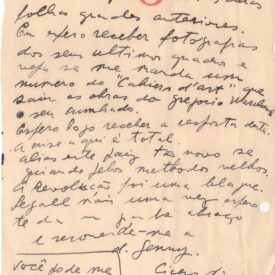 folhas grandes anteriores.
Eu espero receber fotografias
dos seus ultimos quadros e
veja se me manda um
numero do "Cahiers d'art" que
saiu as obras do Gregorio Warchavchik
seu cunhado.
Espero logo receber a resposta desta.
A crise aqui é total.
alias este paiz tão novo se
guiando pelos methodos velhos.
A Revolução foi uma blague.
Segall mais uma vez
te da um abraço
e recomende-me a
d. Jenny.
Você pode me
Cicero Di